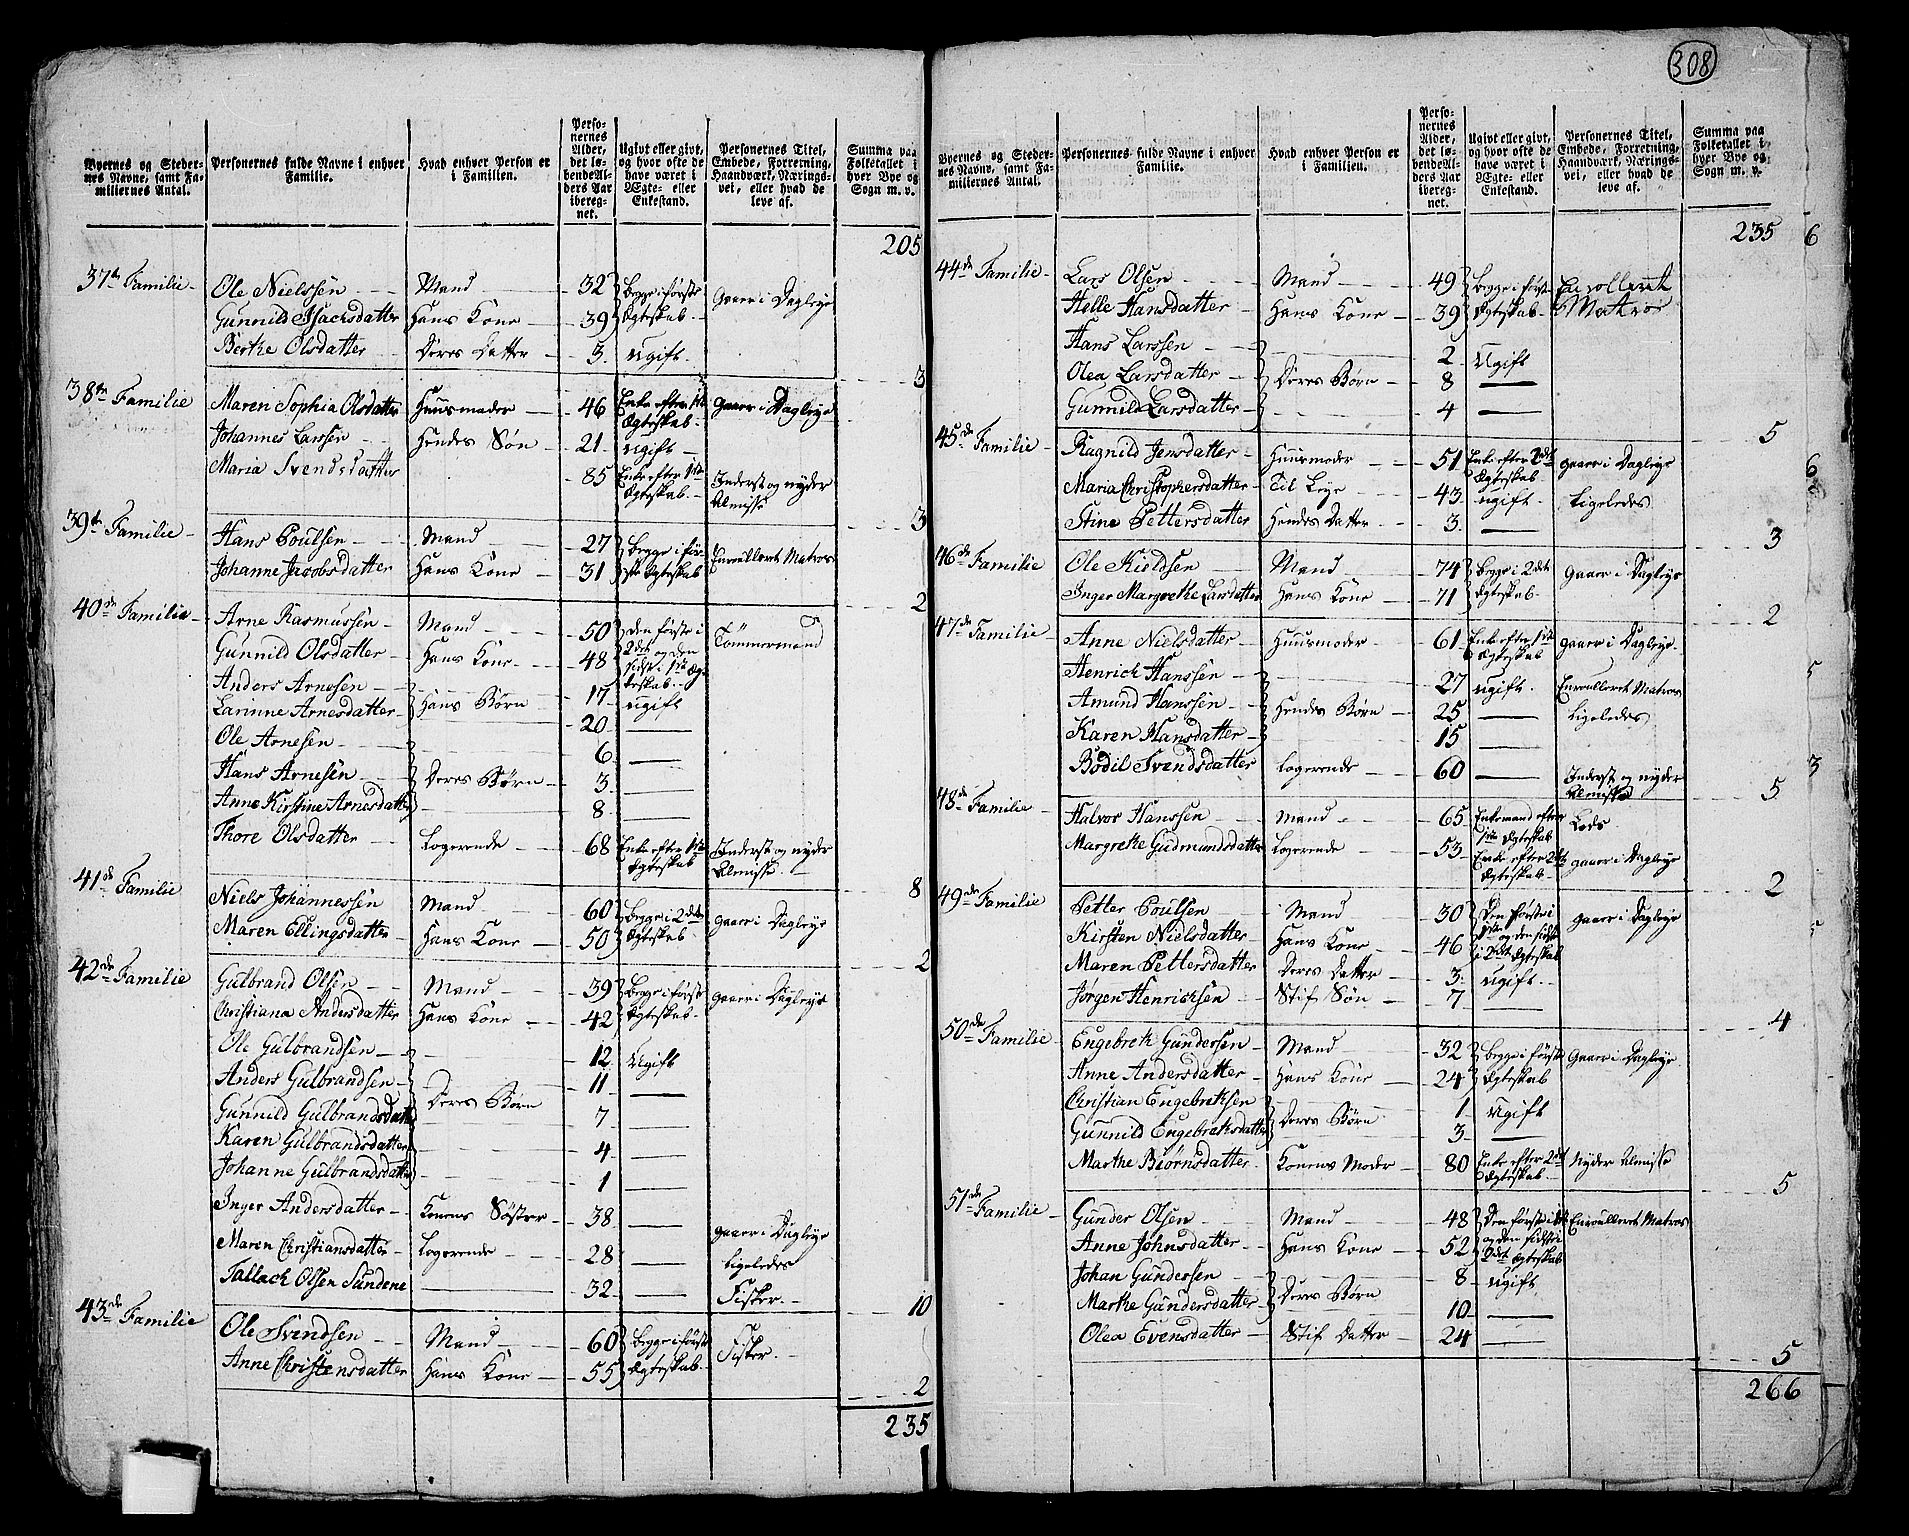 308
Byernes og Steder-
nes Navne, samt Fa-
miliernes Antal.
Personernes fulde Navne i enhver
Familie.
Hvad enhver Person er
i Familien.
Perso-
nernes
Alder,
det lø-
bende Al-
ders Aar
iberegnet.
Ugivt eller givt,
og hvor ofte de
have været i
Ægte- eller
Enkestand.
Personernes Titel,
Embede, Forretning,
Haandværk, Nærings-
vei, eller hvad de
leve af.
Summa paa
Folketallet i
hver Bye og
Sogn m. v.
205
37te Familie - Ole Nielssen - Mand - 32 Begge i første Gaaer i Dagleye
Gunnild Isachsdatter Hans Kone - 39 Ægteskab -
Berthe Olsdatter Deres Datter - 3 Ugift -
3
38te Familie Maren Sophia Olsdatter Huusmoder - 46 Enke efter 1ste gaaer i Dagleye
Ægteskab -
Johannes Larssen Hendes Søn - 21 Ugift -
Maria Svendsdatter - 85 Enke efter 1ste Inderst og nyder
Ægteskab - Almisse
3
39te Familie - Hans Poulsen - Mand - 27 Begge i før- Enroulleret Matros
Johanne Jacobsdatter Hans Kone - 31 ste Ægteskab
2
40de Familie - Arne Rasmussen - Mand - 50 den første i Tømmermand
Gunnild Olsdatter - Hans Kone - 48 2det og den
sidst i 1ste Æg-
teskab -
Anders Arnesen - Hans Børn - 17 Ugift
Larinne Arnesdatter - 20 —
Ole Arnesen - 6 —
Hans Arnesen - Deres Børn - 3 —
Anne Kirstine Arnesdatter - 8 —
Thore Olsdatter Logerende - 68 Enke efter 1ste Inderst og nyder
Ægteskab Almisse. -
8
41de Familie Niels Johannessen Mand - 60 Begge i 2det gaaer i Dagleye
Maren Ellingsdatter Hans Kone - 50 Ægteskab -
2
42de Familie Gulbrand Olsen Mand - 39 Begge i første gaaer i Dagleye
Christiana Andersdatter Hans Kone - 42 Ægteskab -
Ole Gulbrandsen - 12 Ugift
Anders Gulbrandsen - Deres Børn 11 —
Gunnild Gulbrandsdatter - 7 —
Karen Gulbrandsdatter - 4 —
Johanne Gulbrandsdatter - 1 —
Inger Andersdatter - Konens Søster - 38 —
Maren Christiansdatter - Logerende - 28 — gaaer i Dagleye
Tallach Olsen Sundene — 32 — Ligeledes
Fisker. -
10
43de Familie Ole Svendsen - Mand - 60 Begge i første Fisker. -
Anne Christensdatter Hans Kone - 55 Ægteskab -
2
235
Byernes og Steder-
nes Navne, samt Fa-
miliernes Antal.
Personernes fulde Navne i enhver
Familie.
Hvad enhver Person er
i Familien.
Perso-
nernes
Alder,
det lø-
bende Al-
ders Aar
iberegnet.
Ugivt eller givt,
og hvor ofte de
have været i
Ægte- eller
Enkestand.
Personernes Titel,
Embede, Forretning,
Haandværk, Nærings-
vei, eller hvad de
leve af.
Summa paa
Folketallet i
hver Bye og
Sogn m. v.
235
44de Familie - Lars Olsen - Mand - 49 Begge i første Enrolleret
Helle Hansdatter - Hans Kone - 39 Ægteskab - Matros
Hans Larssen - 2 Ugift
Olea Larsdatter - Deres Børn - 8 —
Gunnild Larsdatter - 4 —
5
45de Familie - Ragnild Jensdatter - Huusmoder - 51 Enke efter 2det gaaer i Dagleye
Ægteskab -
Maria Christophersdatter - Til Leye - 43 Ugift - Ligeledes
Stine Pettersdatter Hendes Datter - 3 —
3
46de Familie Ole Kieldsen Mand - 74 Begge i 2det gaaer i Dagleye
Inger Margrethe Larsdatter Hans Kone - 71 Ægteskab -
2
47de Familie - Anne Nielsdatter - Huusmoder - 61 Enke efter 1ste gaaer i Dagleye -
Ægteskab
Henrich Hanssen - 27 Ugift. Enroulleret Matros
Amund Hanssen - Hendes Børn - 25 — Ligeledes
Karen Hansdatter - 15 —
Bodil Svendsdatter Logerende - 60 — Inderst og nyder
Almisse
5
48de Familie - Halvor Hanssen - Mand - 65 Enkemand efter Lods.
1ste Ægteskab
Margrethe Gudmundsdatter Logerende - 53 Enke efter 2det gaaer i Dagleye
Ægteskab -
2
49de Familie - Petter Poulsen - Mand - 30 Den første i gaaer i Dagleye
Kirsten Nielsdatter - Hans Kone - 46 1ste og den sidste
i 2det Ægteskab
Maren Pettersdatter Deres Datter - 3 Ugift -
Jørgen Henrichsen - Stif Søn - 7 —
4
50de Familie - Engebreth Gundersen - Mand - 32 Begge i første Gaaer i Dagleye
Anne Andersdatter - Hans Kone - 24 Ægteskab
Christian Engebrethsen - 1 Ugift
Gunnild Engebrethsdatter Deres Børn - 3 —
Marthe Biørnsdatter - Konens Moder - 80 Enke efter 2det Nyder Almisse
Ægteskab -
5
51de Familie - Gunder Olsen - Mand - 48 Den første i 1ste Enroulleret Matros
Anne Johnsdatter - Hans Kone - 52 og den sidste i
2det Ægteskab
Johan Gundersen - 8 Ugift
Marthe Gundersdatter - Deres Børn 10 —
Olea Evensdatter - Stif Datter - 24 —
5
266
6
6
5
3
5